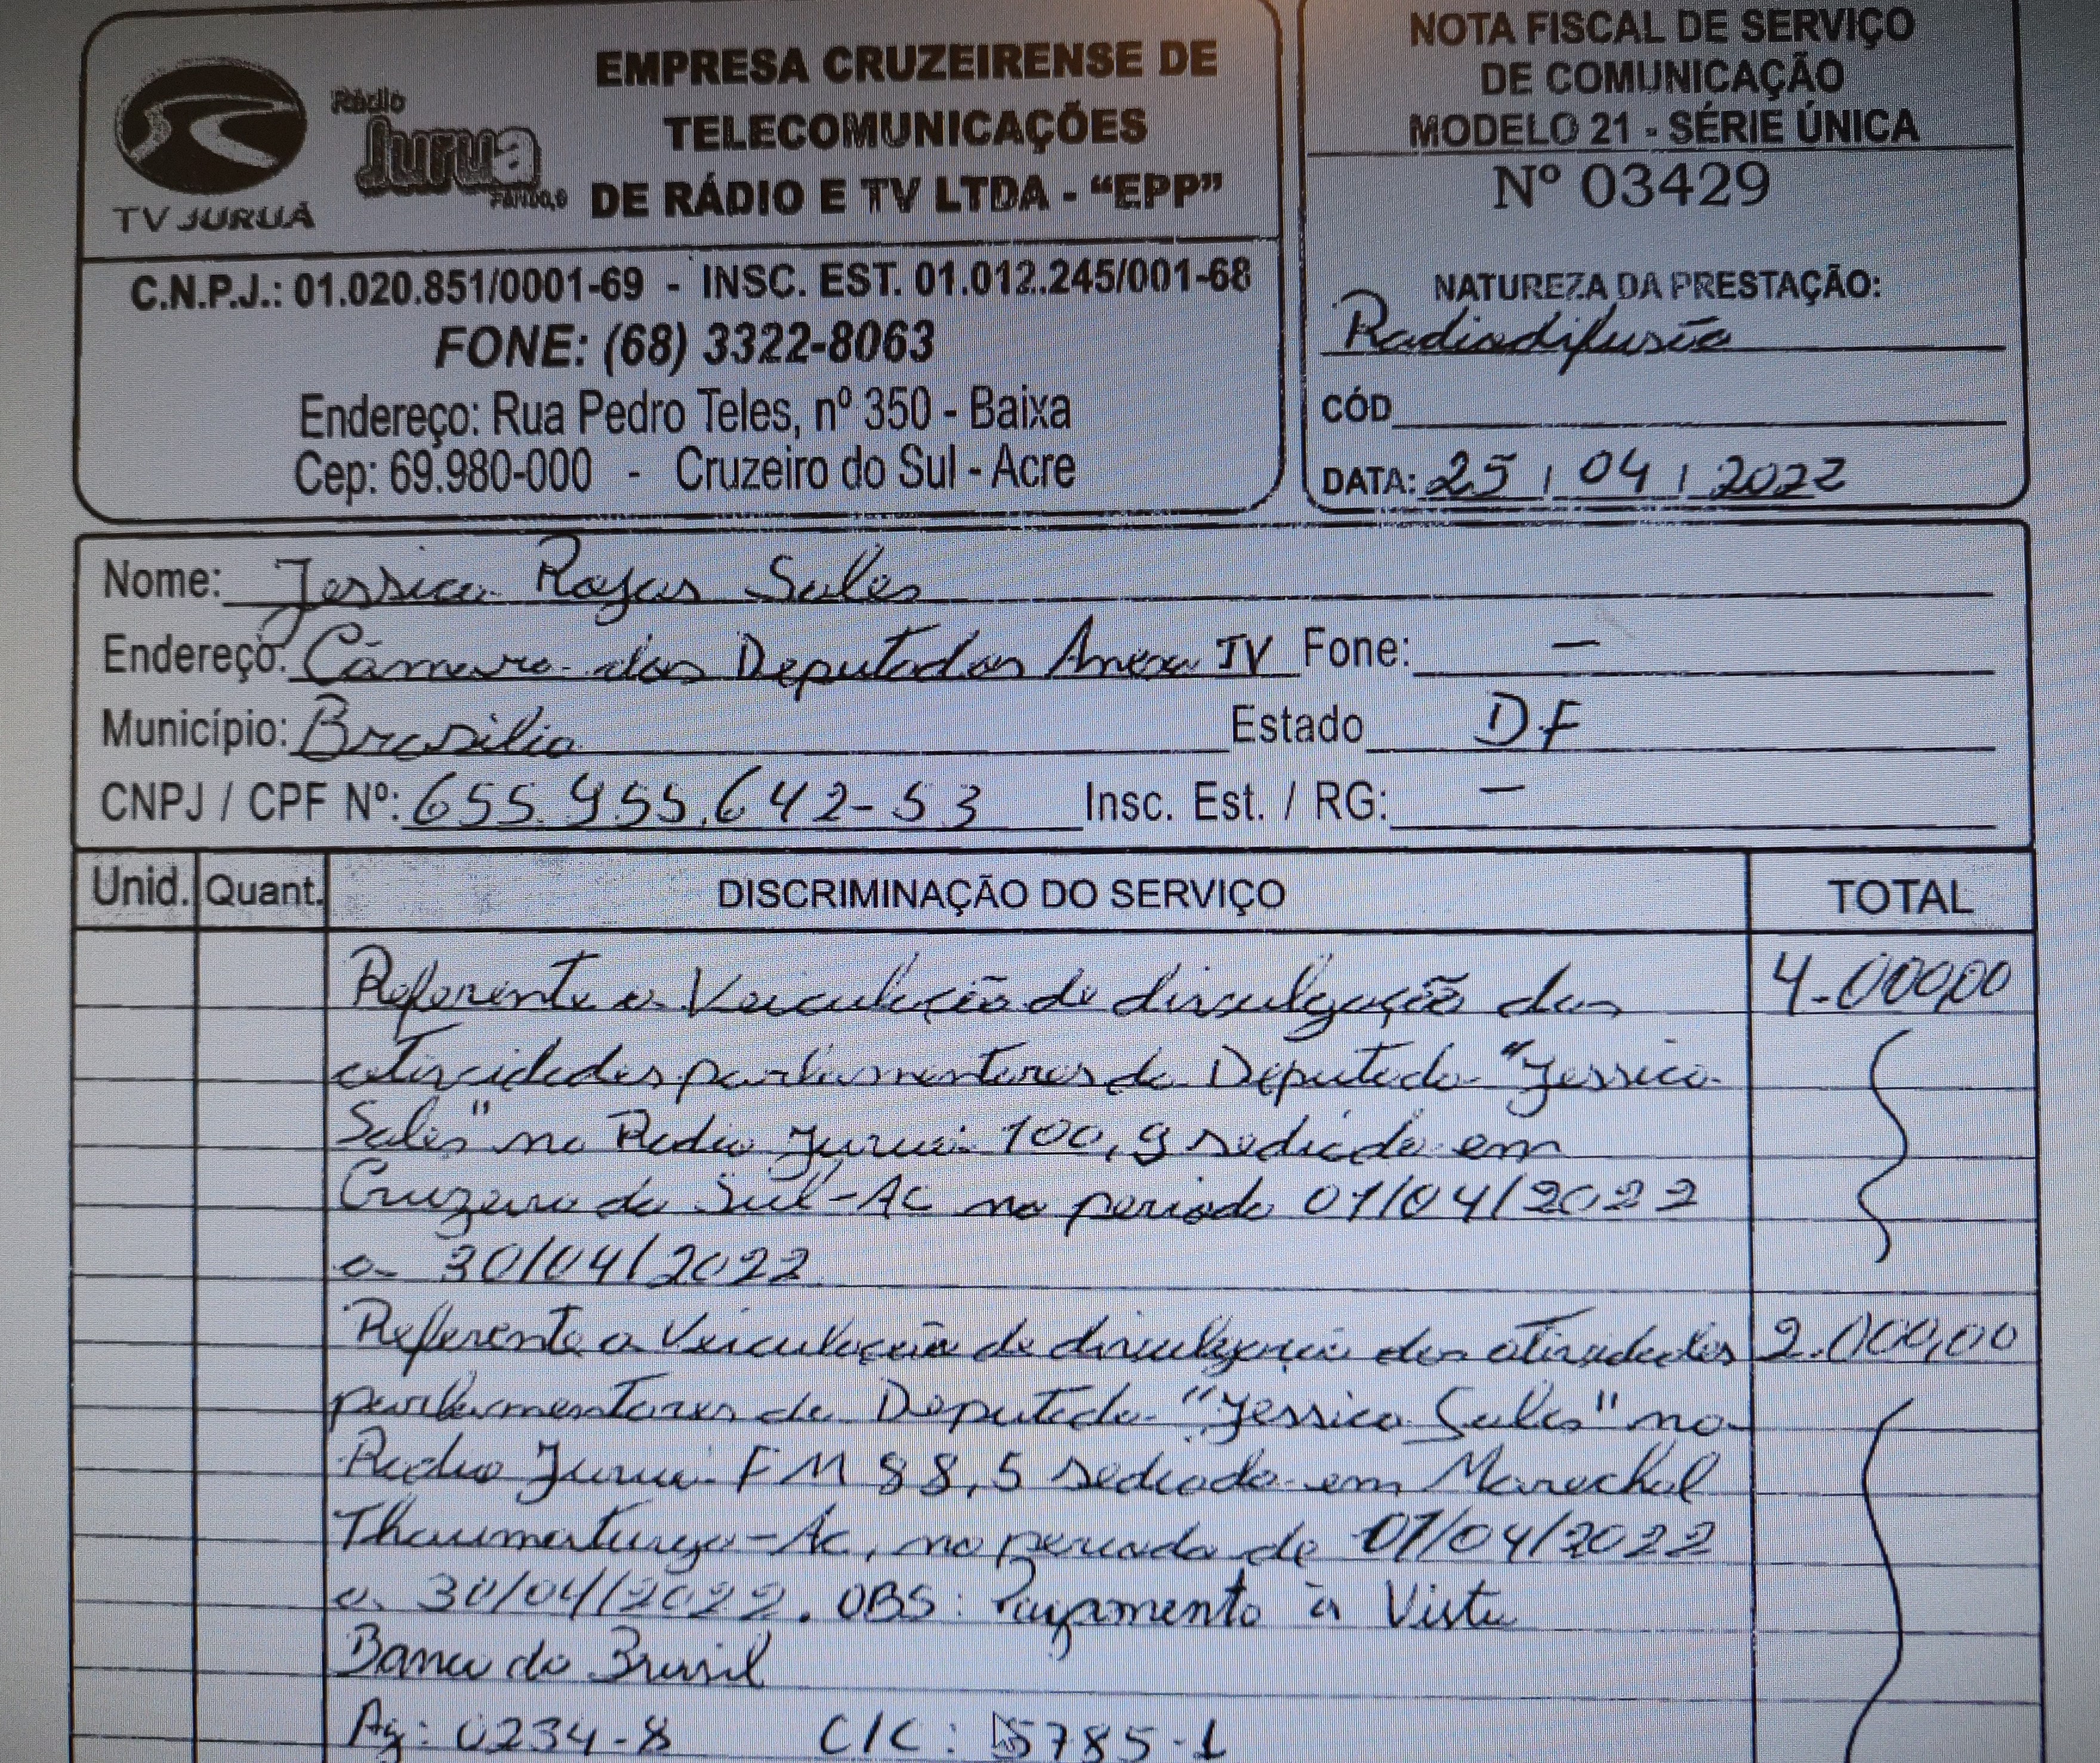 EMPRESA CRUZEIRENSE DE
TELECOMUNICAÇÕES
DE RÁDIO E TV LTDA - “EPP”
TV JURUÁ
Rádio
Juruá
C.N.P.J.: 01.020.851/0001-69 - INSC. EST. 01.012.245/001-68
FONE: (68) 3322-8063
Endereço: Rua Pedro Teles, nº 350 - Baixa
Cep: 69.980-000 - Cruzeiro do Sul - Acre
NOTA FISCAL DE SERVIÇO
DE COMUNICAÇÃO
MODELO 21 - SÉRIE ÚNICA
Nº 03429
NATUREZA DA PRESTAÇÃO:
Radiodifusão
CÓD
DATA: 25 / 04 / 2022
Nome: Jessica Rojas Sales
Endereço: Câmara dos Deputados Anexo IV Fone: -
Município: Brasilia Estado DF
CNPJ / CPF Nº: 655.955.642-53 Insc. Est. / RG: -
Unid. Quant. DISCRIMINAÇÃO DO SERVIÇO TOTAL
Referente a Veiculação de divulgação das 4.000,00
atividades parlamentares da Deputada "Jessica
Sales" na Radio Juruá 100,9 sediada em
Cruzeiro do Sul-Ac no periodo 01/04/2022
a 30/04/2022
Referente a Veiculação de divulgação das atividades 2.000,00
parlamentares da Deputada "Jessica Sales" na
Radio Juruá FM 88,5 sediada em Marechal
Thaumaturgo-Ac, no periodo de 01/04/2022
a 30/04/2022. OBS: Pagamento à Vista
Banco do Brasil
Ag: 0234-8 C/C: 5785-1